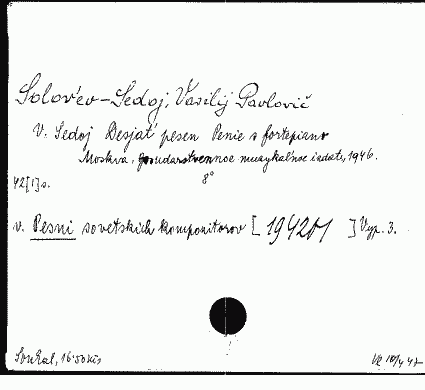 Solov'ev-Sedoj, Vasilij Pavlovič
V. Sedoj Desjat' pesen Penie s fortepiano
Moskva, gosudarstvennoe muzykal'noe izdat., 1946.
42[1]s. 8°
v. Pesni sovetskich kompozitorov [194201 ] Vyp. 3.
16.50 Kčs